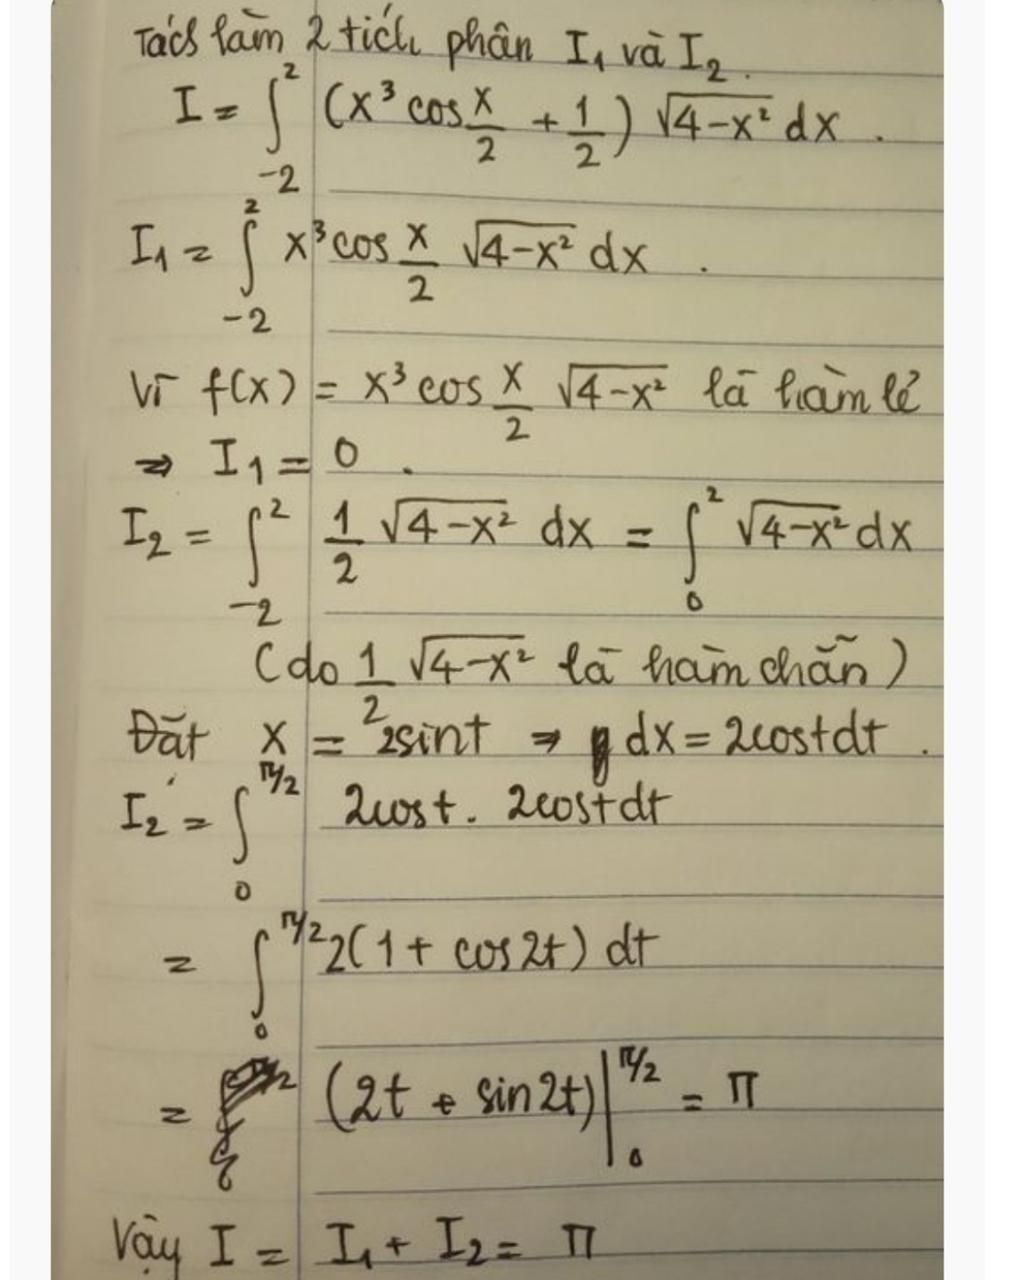 Tách làm 2 tích phân I₁ và I₂.
I = ∫₋₂² (x³ cos x/2 + 1/2) √(4-x²) dx .
I₁ = ∫₋₂² x³ cos x/2 √(4-x²) dx .
Vì f(x) = x³ cos x/2 √(4-x²) là hàm lẻ
⇒ I₁ = 0 .
I₂ = ∫₋₂² 1/2 √(4-x²) dx = ∫₀² √(4-x²) dx
(do 1/2 √(4-x²) là hàm chẵn)
Đặt x = 2sint ⇒ dx = 2costdt .
I₂ = ∫₀^(π/2) 2cost. 2costdt
= ∫₀^(π/2) 2(1 + cos2t) dt
= (2t + sin2t)|₀^(π/2) = π
Vậy I = I₁ + I₂ = π